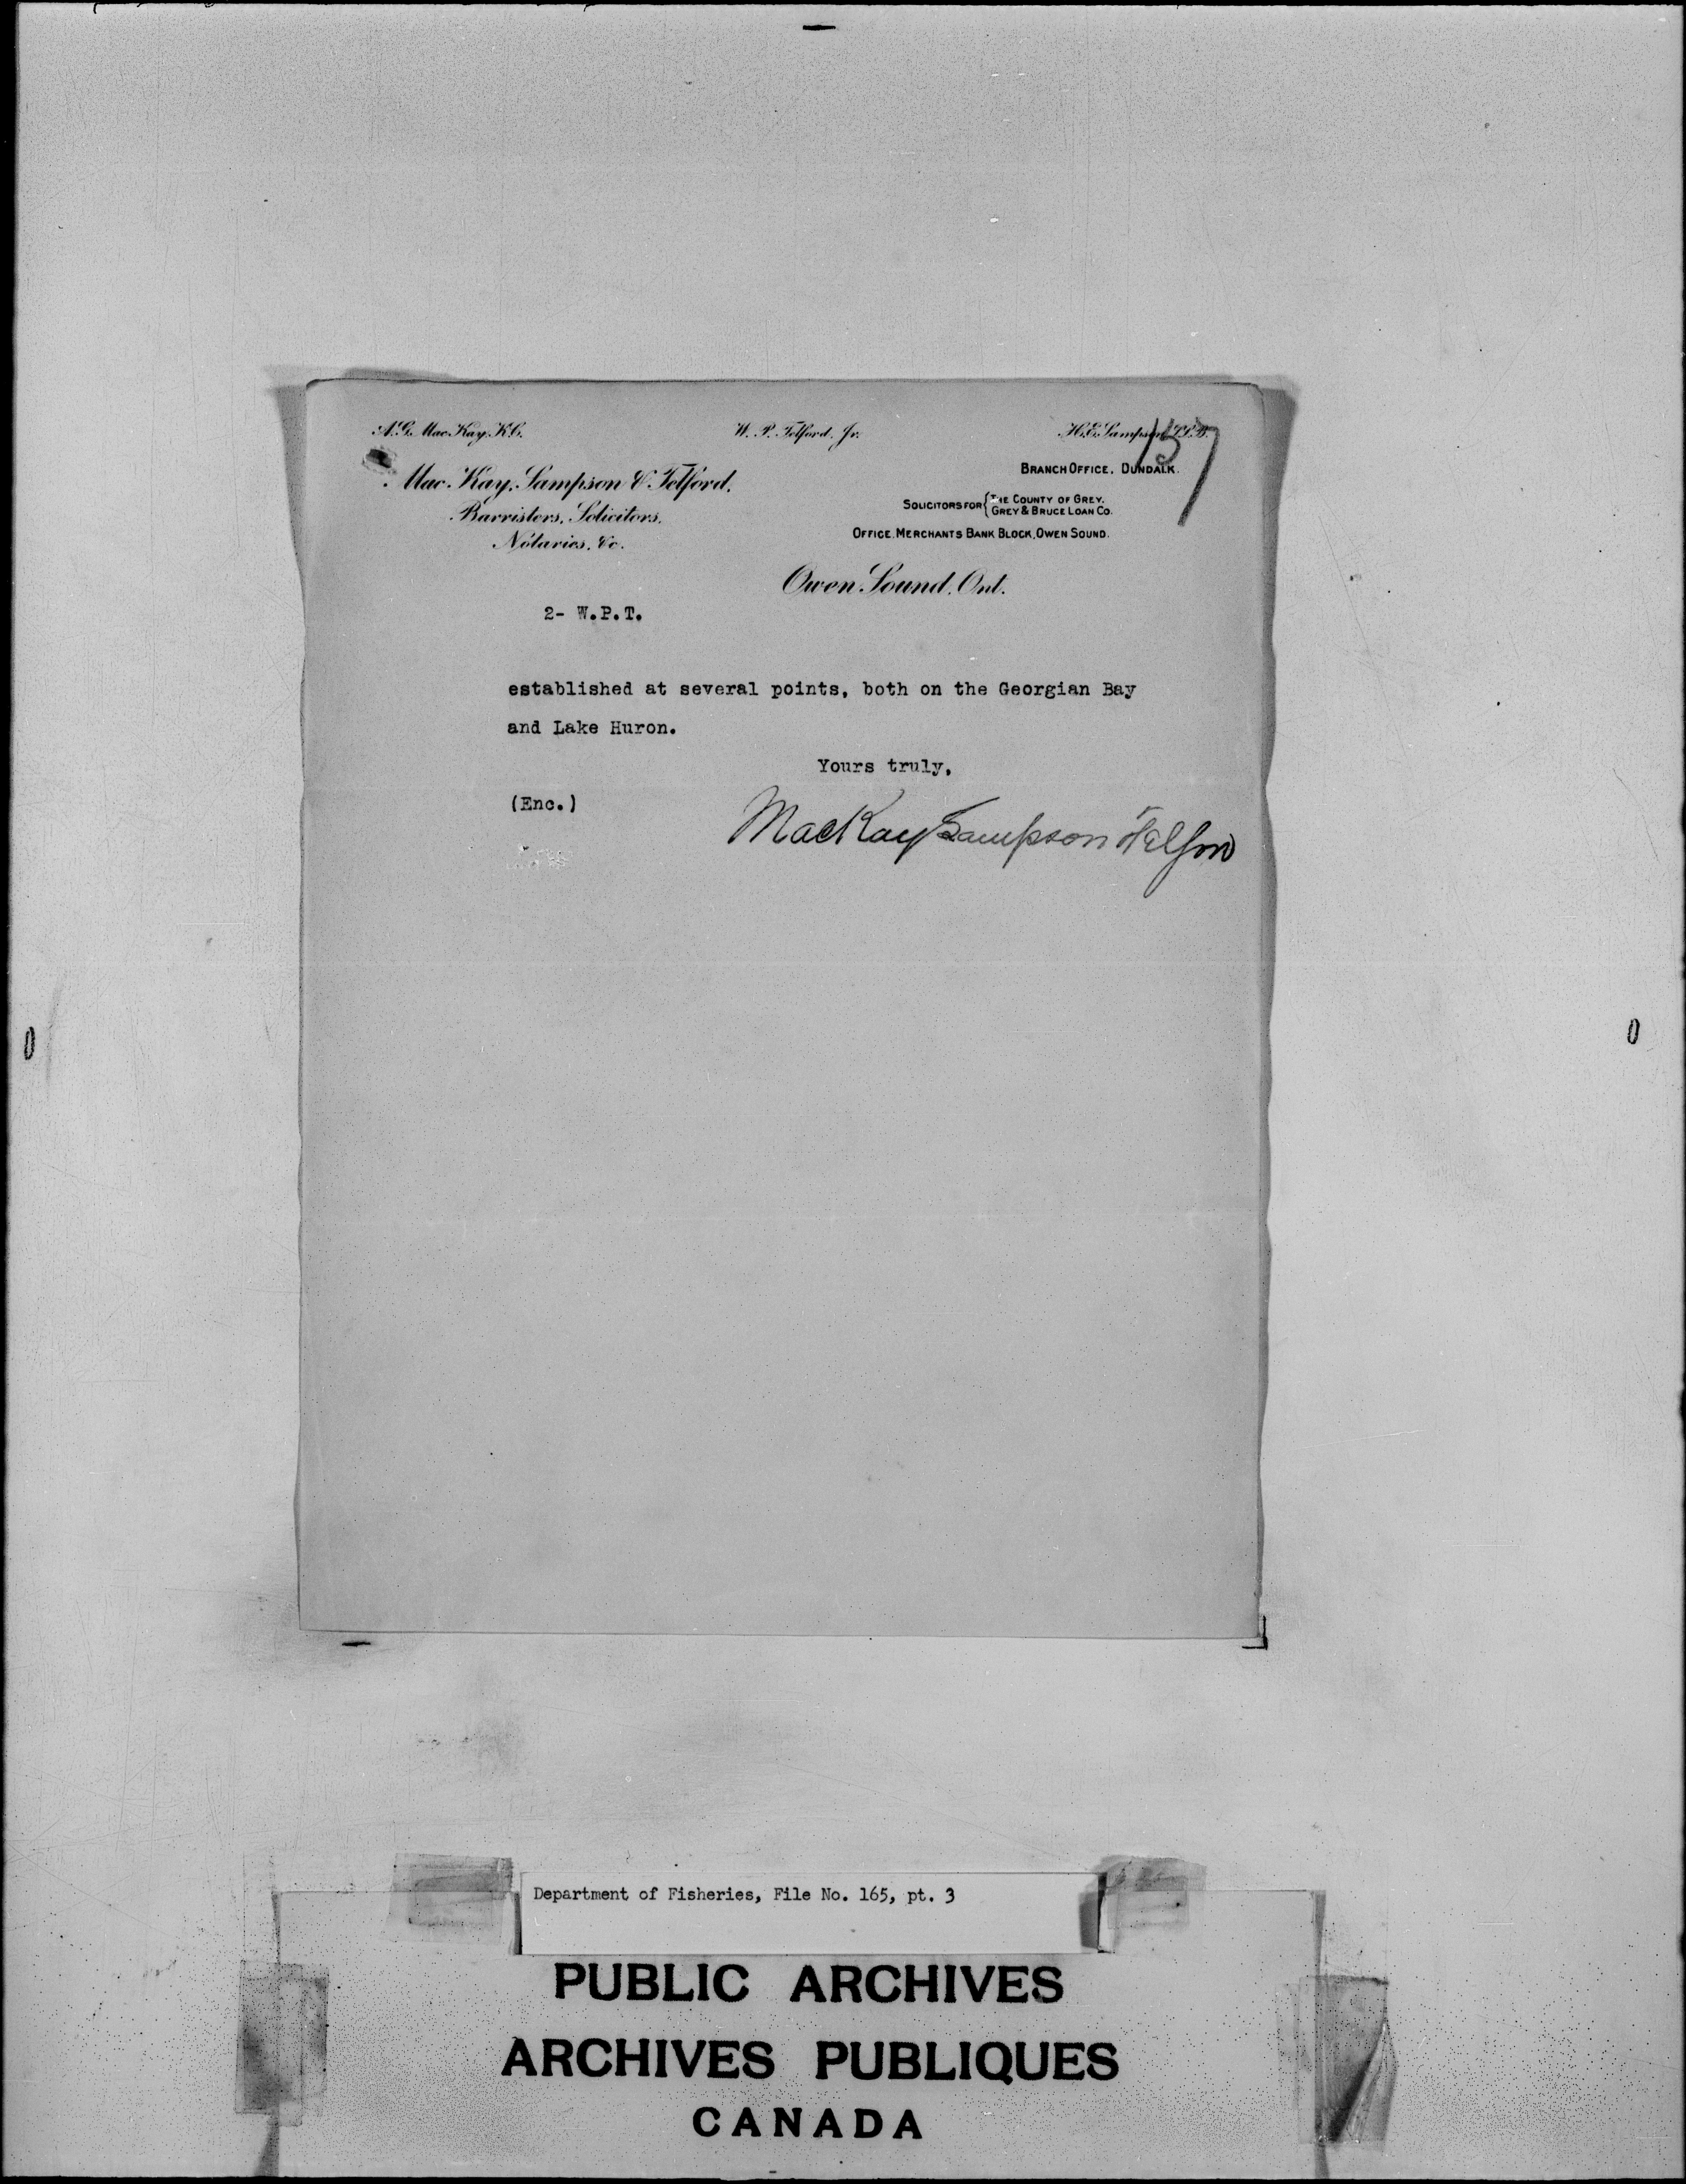 A. G. MacKay, K.C. W. P. Telford, Jr. H. E. Sampson, LL.B.
137
MacKay, Sampson & Telford,
Barristers, Solicitors,
Notaries, &c.
BRANCH OFFICE, DUNDALK.
SOLICITORS FOR { THE COUNTY OF GREY.
GREY & BRUCE LOAN CO.
OFFICE, MERCHANTS BANK BLOCK, OWEN SOUND.
Owen Sound, Ont.
2- W.P.T.
established at several points, both on the Georgian Bay
and Lake Huron.
Yours truly,
(Enc.)
MacKay Sampson & Telford
Department of Fisheries, File No. 165, pt. 3
PUBLIC ARCHIVES
ARCHIVES PUBLIQUES
CANADA